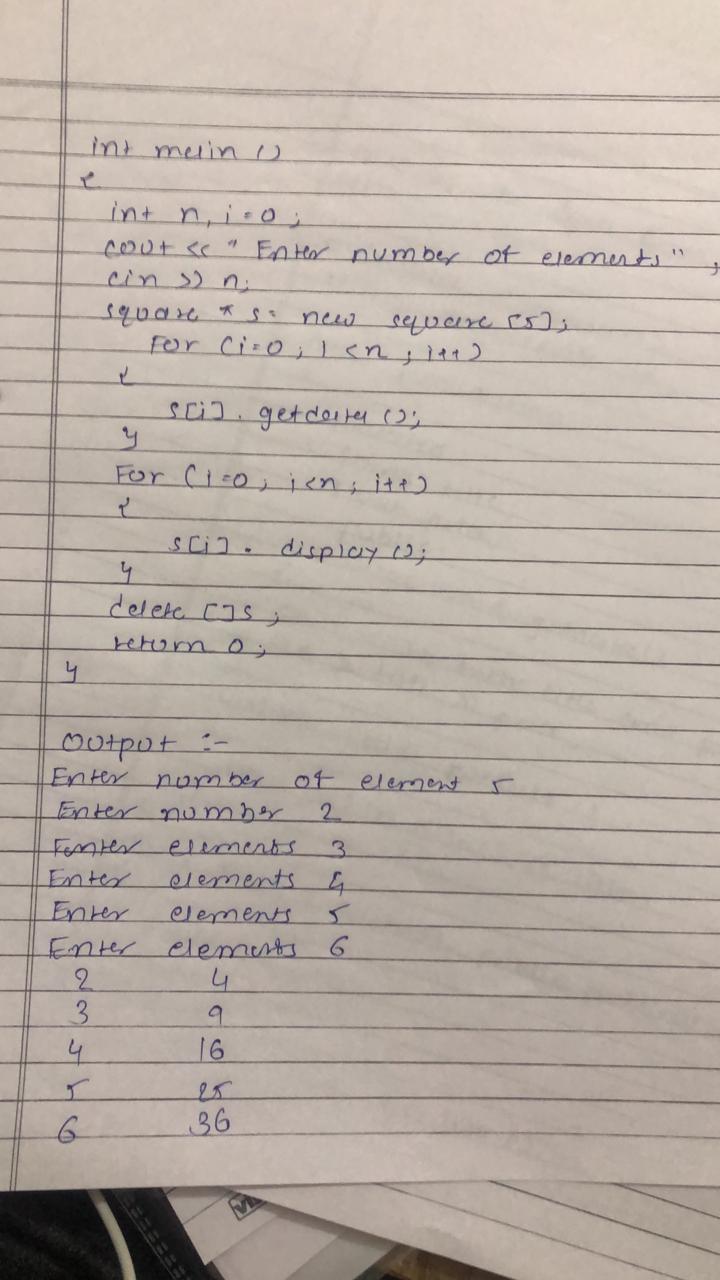 int main ()
{
int n, i=0;
cout << "Enter number of elements";
cin >> n;
square * s = new square [5];
For (i=0; i<n; i++)
{
s[i]. getdata ();
}
For (i=0; i<n; i++)
{
s[i]. display ();
}
delete []s;
return 0;
}
Output :-
Enter number of element 5
Enter number 2
Eenter elements 3
Enter elements 4
Enter elements 5
Enter elements 6
2 4
3 9
4 16
5 25
6 36